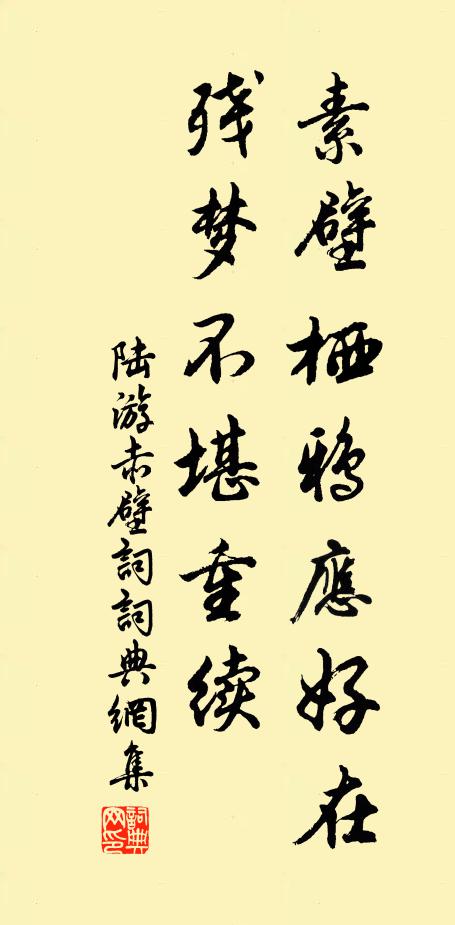 素壁栖鸦應好在
残梦不堪重续
陆游赤壁詞詞典網集
詞典网印